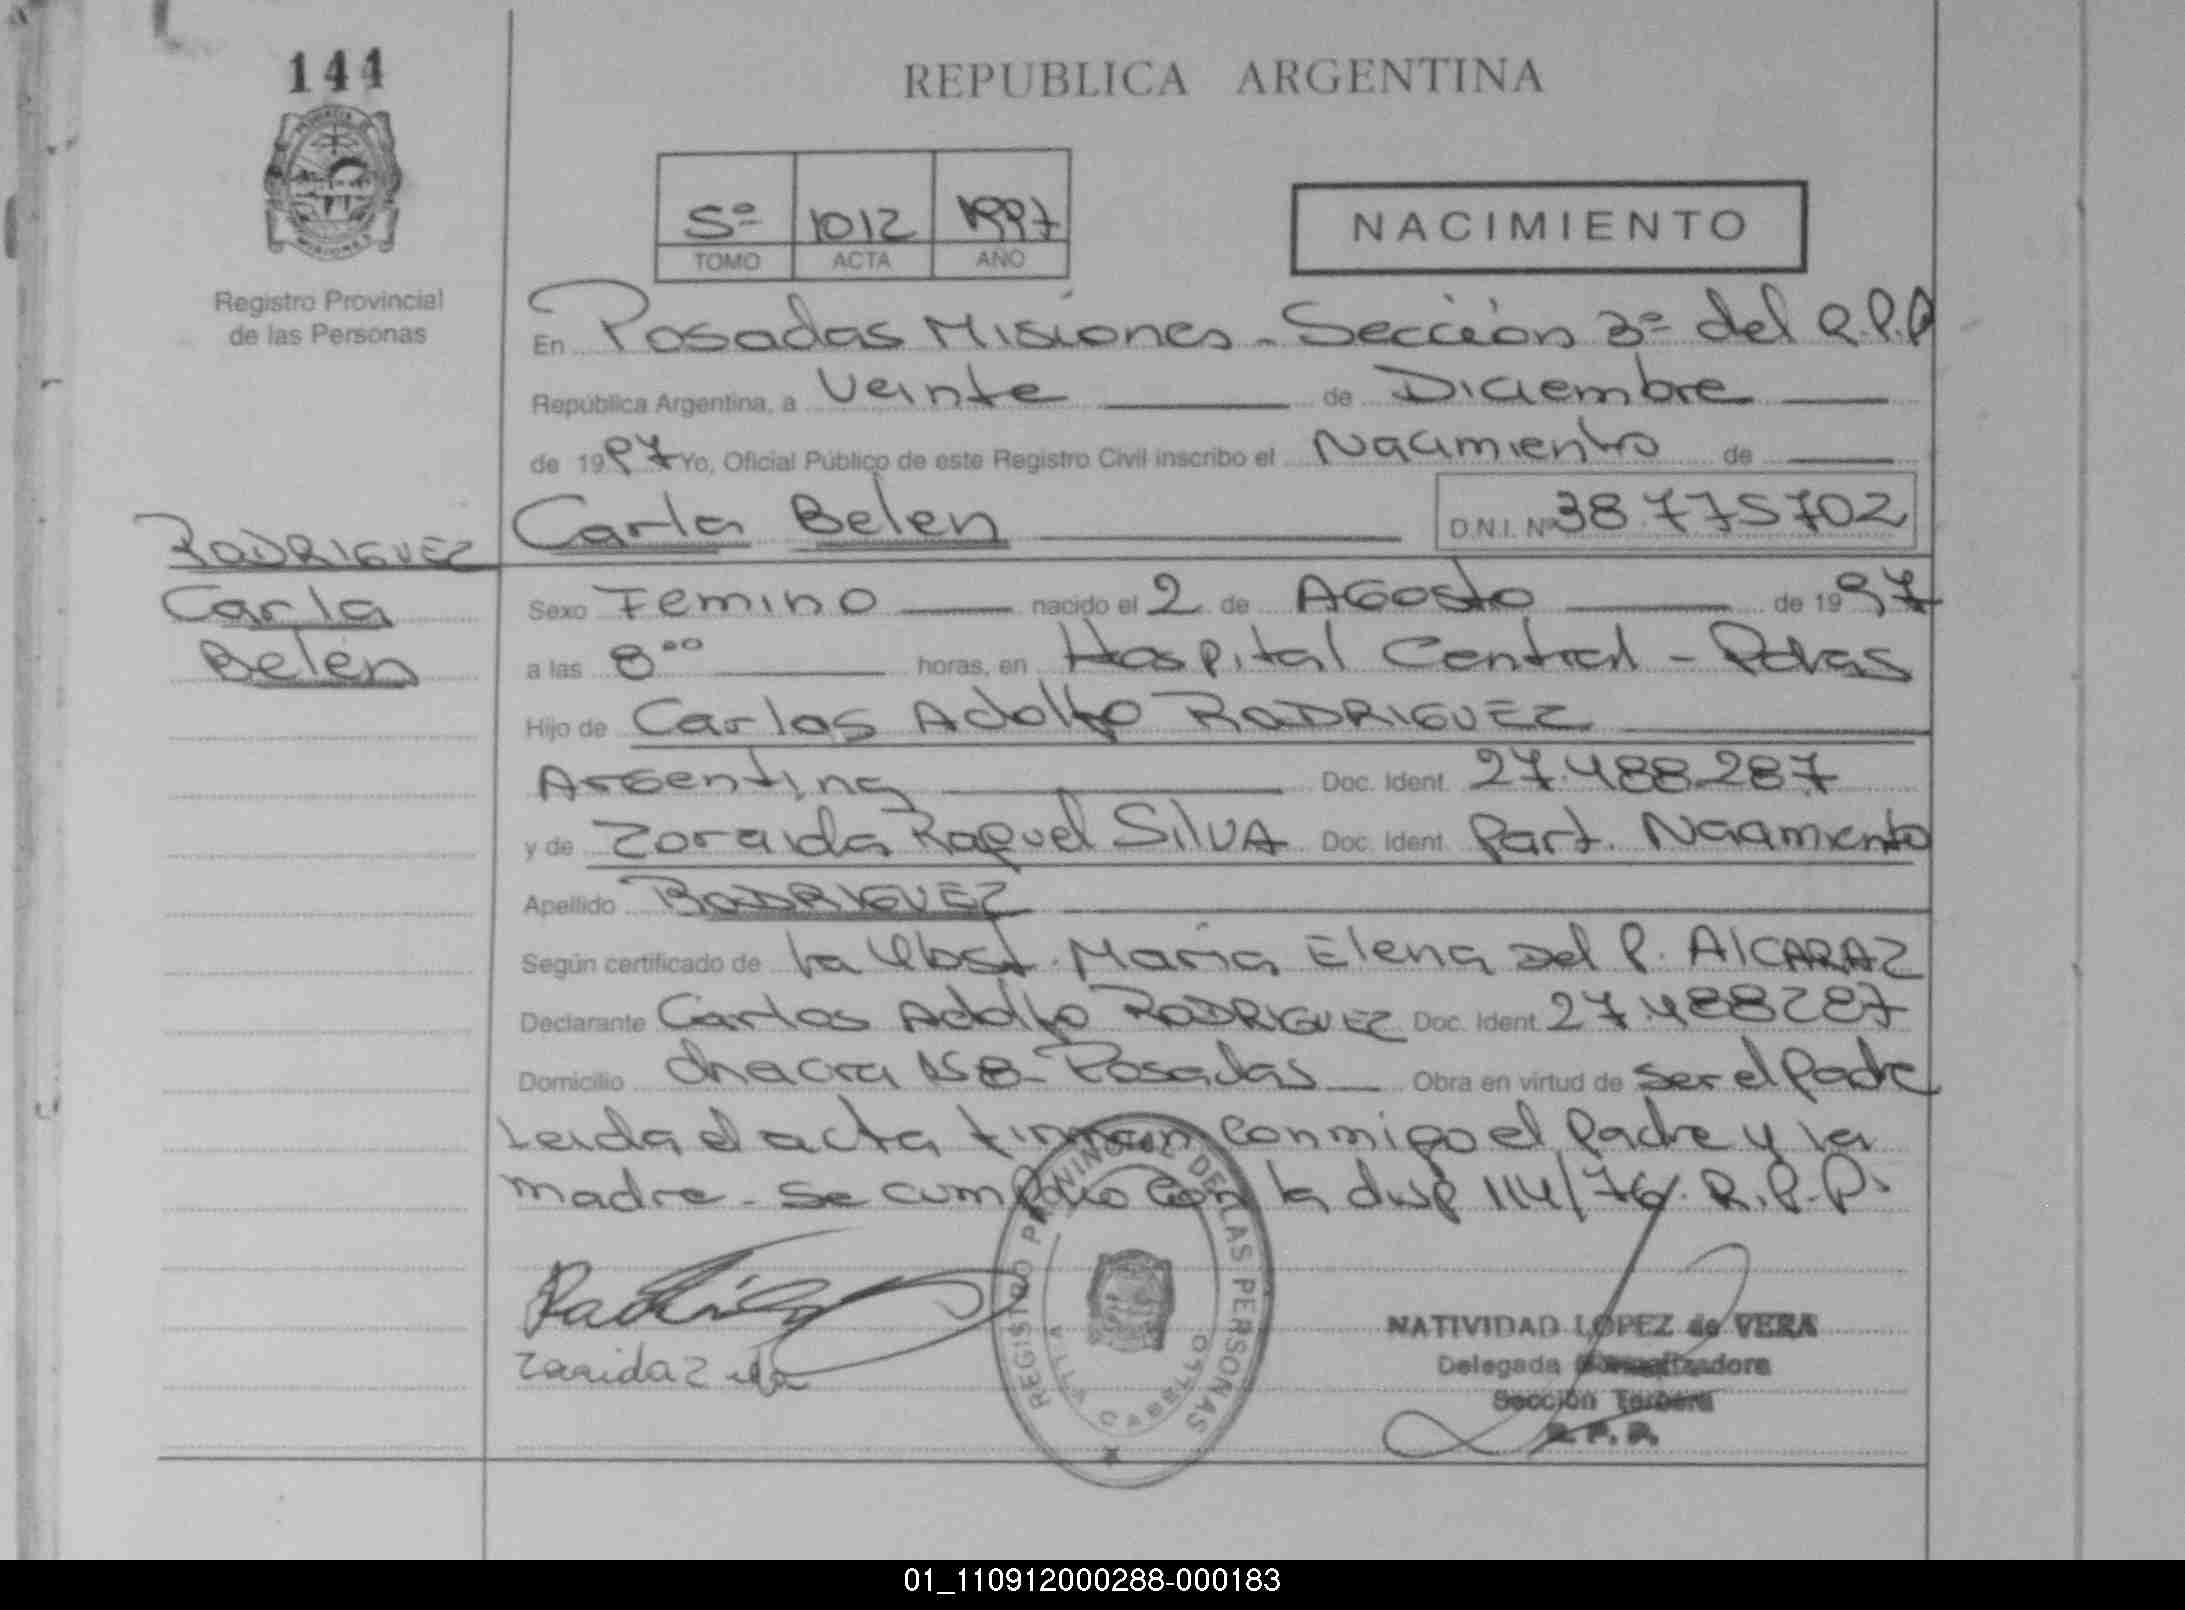 144
REPUBLICA ARGENTINA
PROVINCIA DE
MISIONES
Registro Provincial
de las Personas
5º 1012 1997
TOMO ACTA AÑO
NACIMIENTO
En Posadas Misiones - Sección 3ª del R.P.P
República Argentina, a Veinte de Diciembre
de 1997 Yo, Oficial Público de este Registro Civil inscribo el Nacimiento de
Carla Belen D.N.I. Nº 38.775702
RODRIGUEZ
Carla
Belén
Sexo Femino nacido el 2 de AGosto de 1997
a las 8⁰⁰ horas, en Hospital Central - Pdas
Hijo de Carlos Adolfo RODRIGUEZ
Argentina Doc. Ident. 27.488.287
y de Zoraida Raquel SilVA Doc. Ident. Part. Nacimiento
Apellido RODRIGUEZ
Según certificado de la Obst. María Elena Del P. AlCARAZ
Declarante Carlos Adolfo RODRIGUEZ Doc. Ident. 27.488287
Domicilio chacra 158 - Posadas Obra en virtud de ser el Padre
Leida el acta firman conmigo el Padre y la
madre - se cumplio con la disp 114/76. R.P.P.
REGISTRO PROVINCIAL DE LAS PERSONAS
VILLA CABELLO
NATIVIDAD LOPEZ de VERA
Delegada
Sección Tercera
R.P.P.
01_110912000288-000183